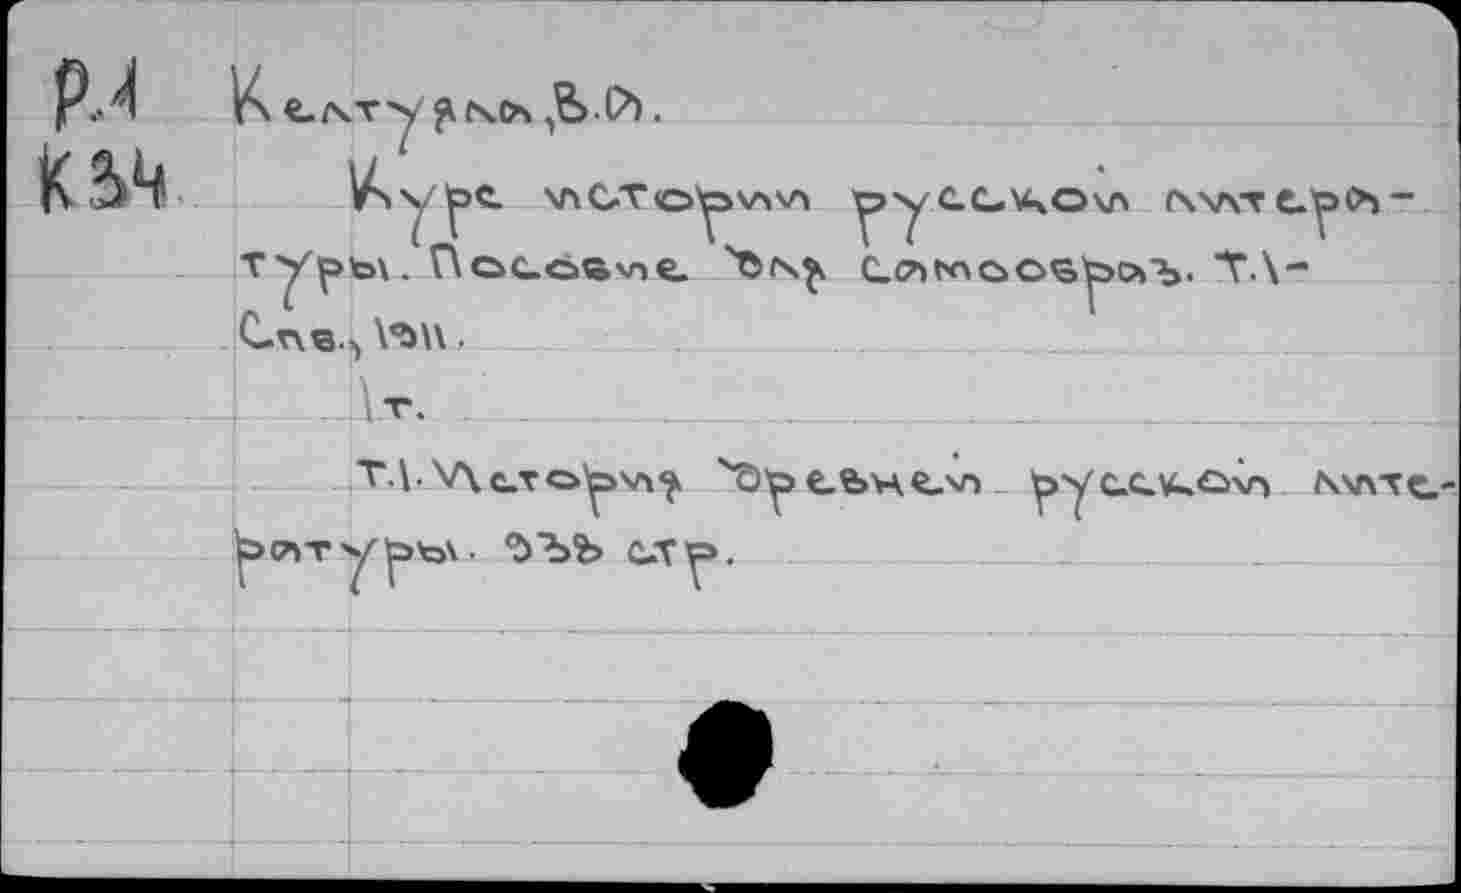 Р.1 Келтуяла, В.А.
К34 Курс истории русской литера-
туры. Пособие для самообраз. Т.1-
Спб., 1911.
1 т.
Т.1. История древней русской лите-
ратуры. 333 стр.